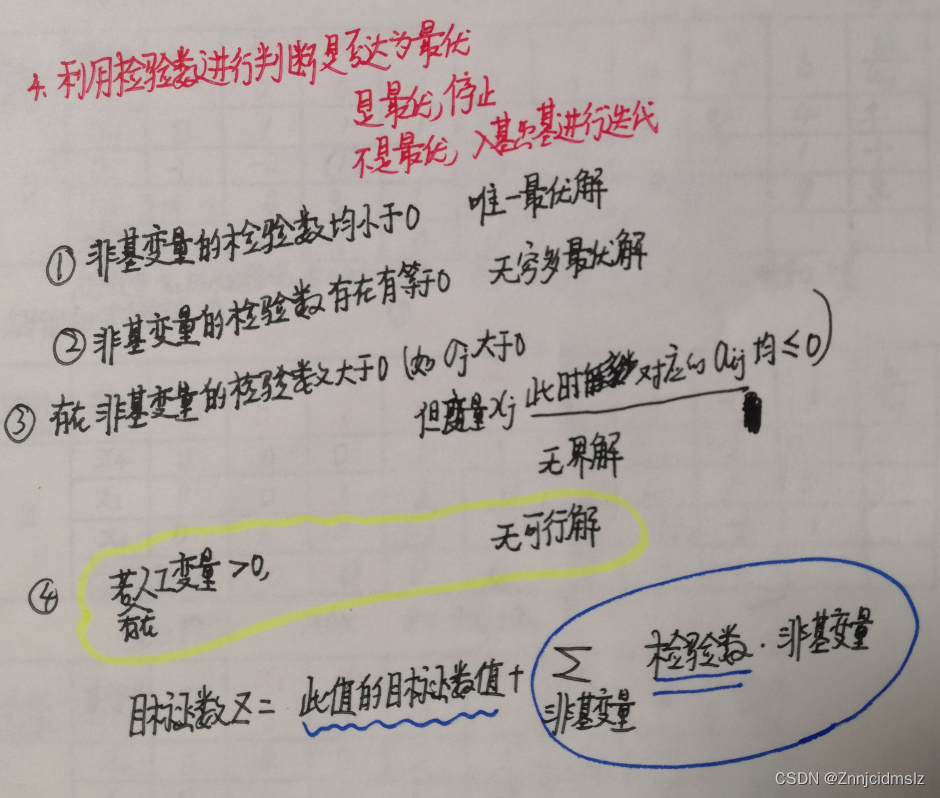 4. 利用检验数进行判断是否达为最优
是最优,停止
不是最优,入基出基进行迭代
① 非基变量的检验数均小于0 唯一最优解
② 非基变量的检验数存在有等于0 无穷多最优解
③ 存在非基变量的检验数大于0 (如 σj 大于0
但变量xj 此时对应的 aij 均≤0)
无界解
④ 若存在人工变量>0, 无可行解
目标函数Z= 此值的目标函数值+ ∑ 检验数·非基变量
非基变量
CSDN @Znnjcidmslz